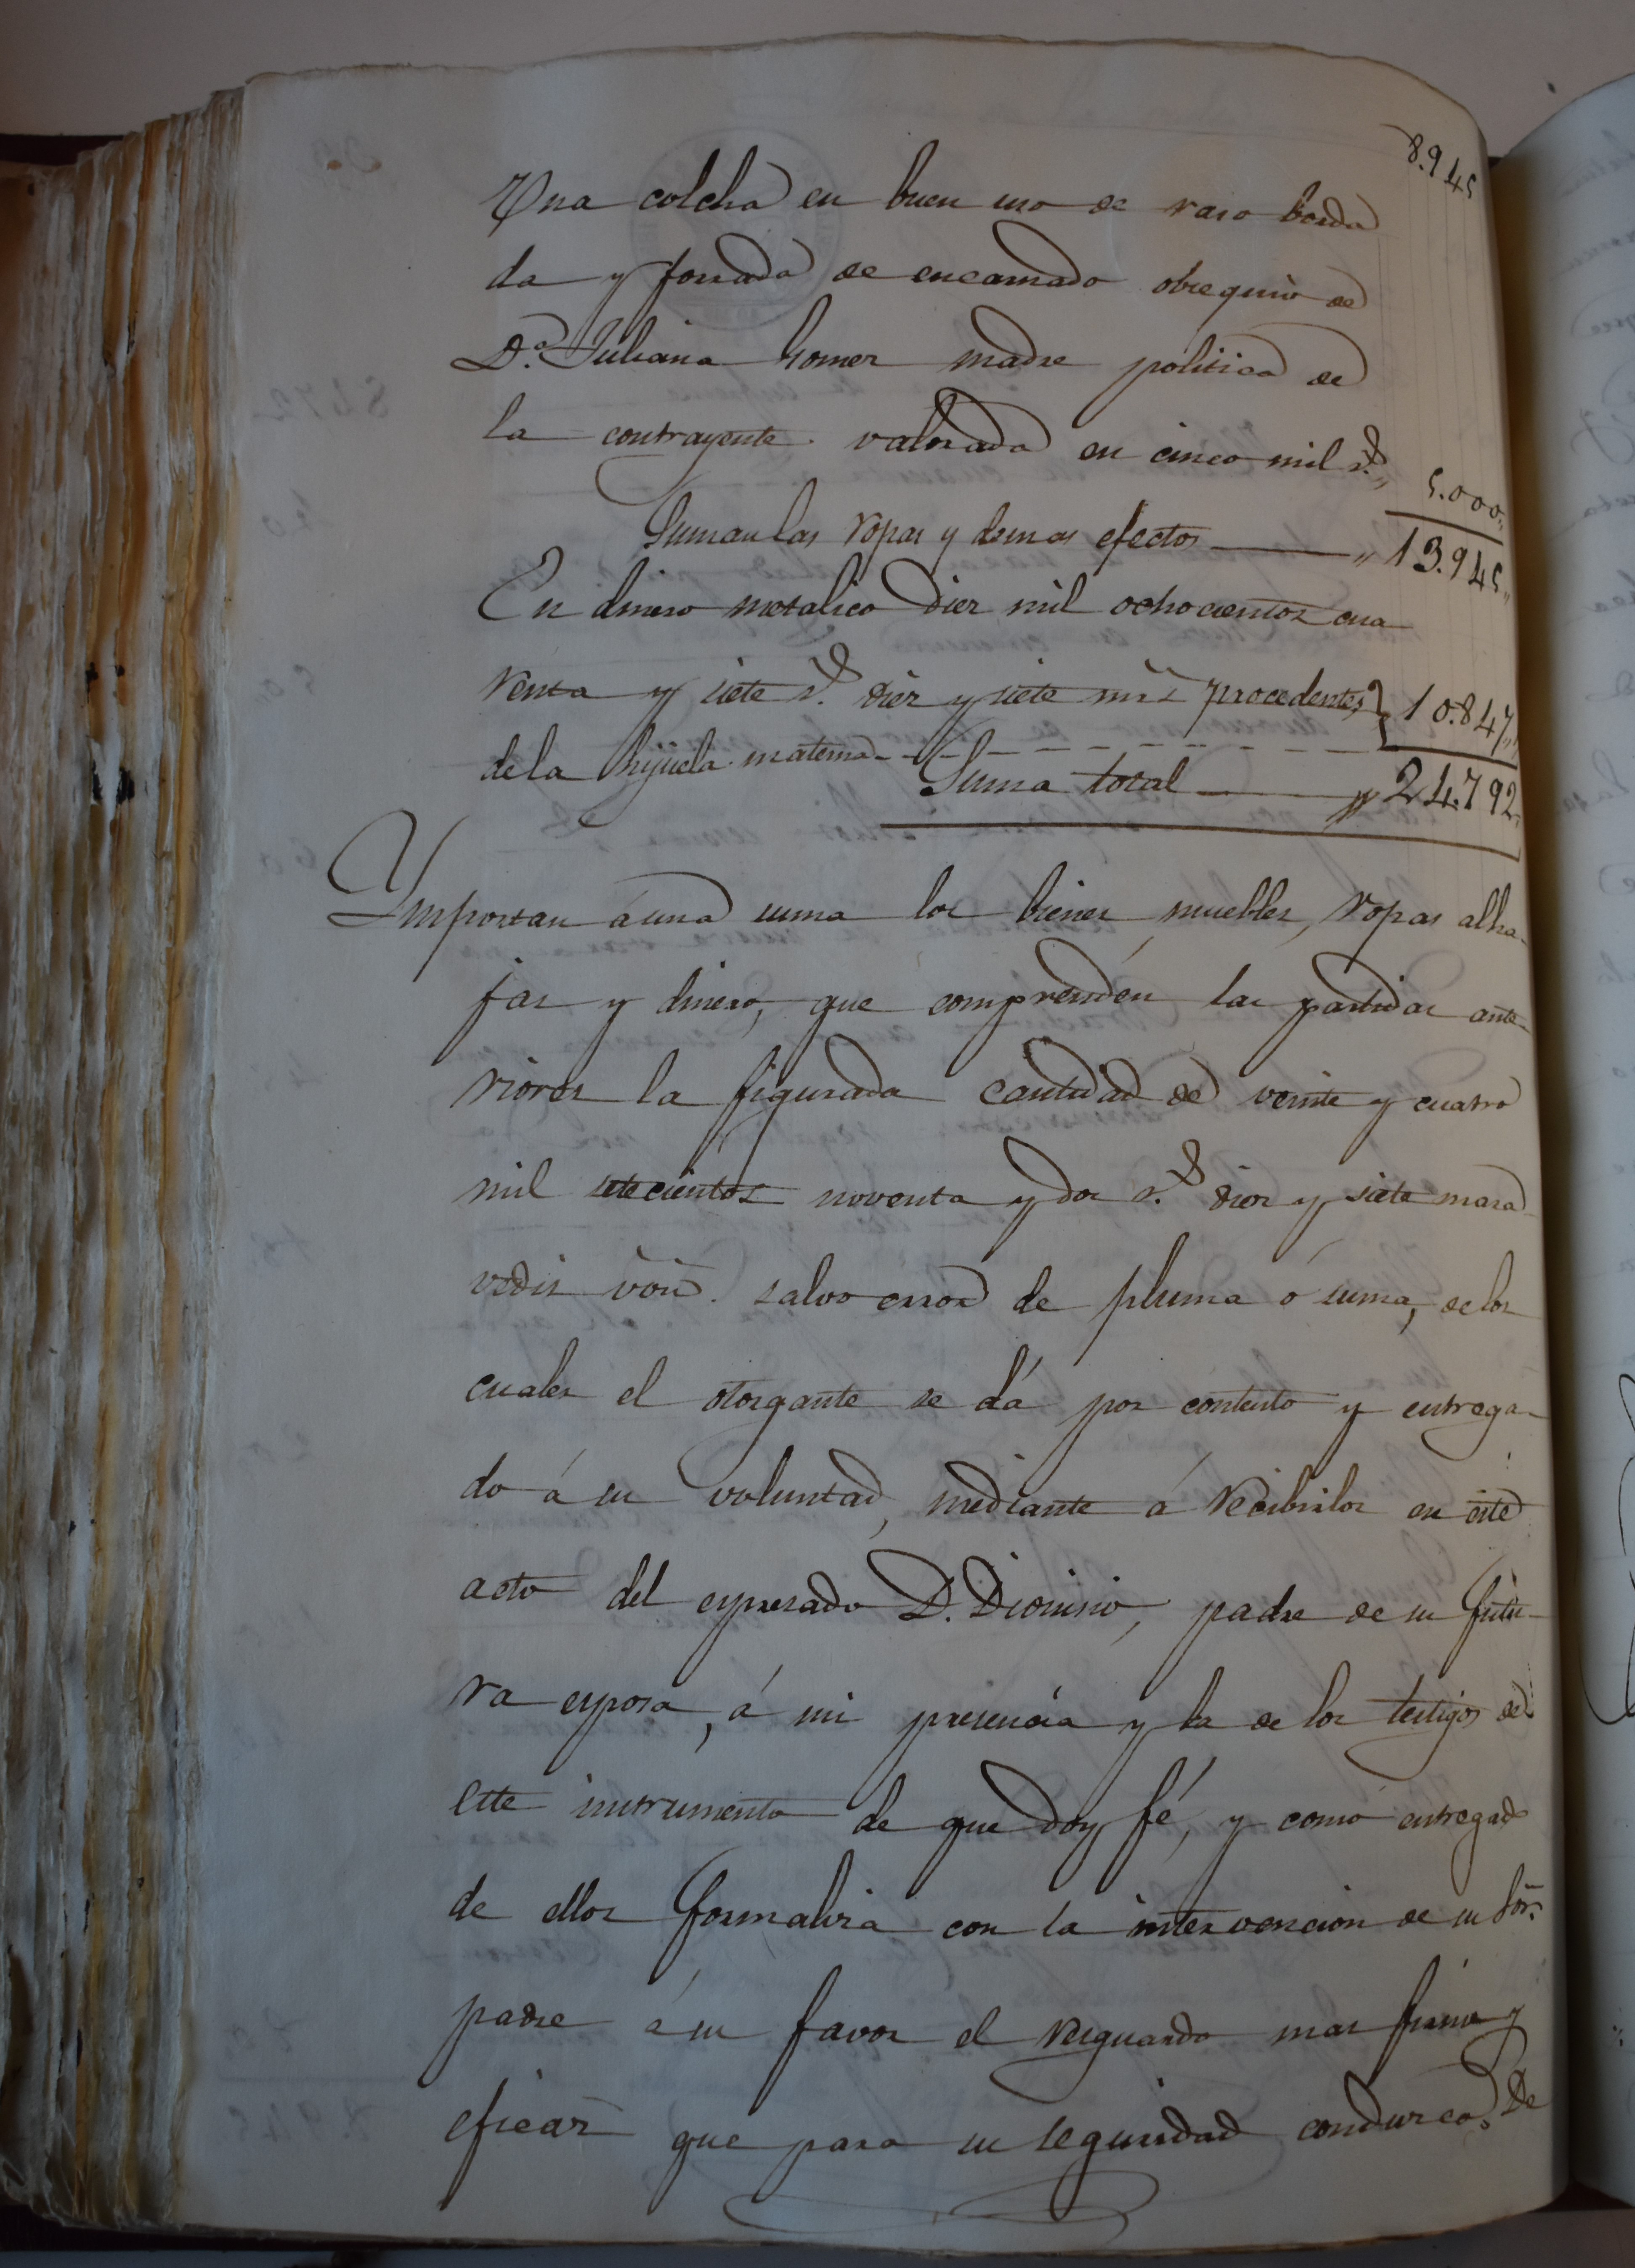 8.945
Una colcha en buen uso de raso borda
da y forrada de encarnado obsequio de
D.ª Juliana Gomez madre politica de
la contrayente valorada en cinco mil r.s ,, 5.000,,
Suman las ropas y demas efectos ,, 13.945,,
En dinero metalico diez mil ochocientos cua
renta y siete r.s diez y siete mrs procedentes } 10.847,,
de la hijuela materna
Suma total ,, 24.792,,
Ymportan á una suma los bienes muebles, ropas alha-
jas y dinero, que comprenden las partidas ante-
riores la figurada cantidad de veinte y cuatro
mil setecientos noventa y dos r.s diez y siete mara
vedis von. salvo error de pluma ó suma, de los
cuales el otorgante se dá por contento y entrega-
do á su voluntad, mediante á recibirlos en este
acto del espresado D. Dionisio, padre de su futu-
ra esposa, á mi presencia y la de los testigos de
este instrumento de que doy fé, y como entregado
de ellos formaliza con la intervencion de su Sör.
padre á su favor el resguardo mas firme y
eficaz que para su seguridad conduzca. De